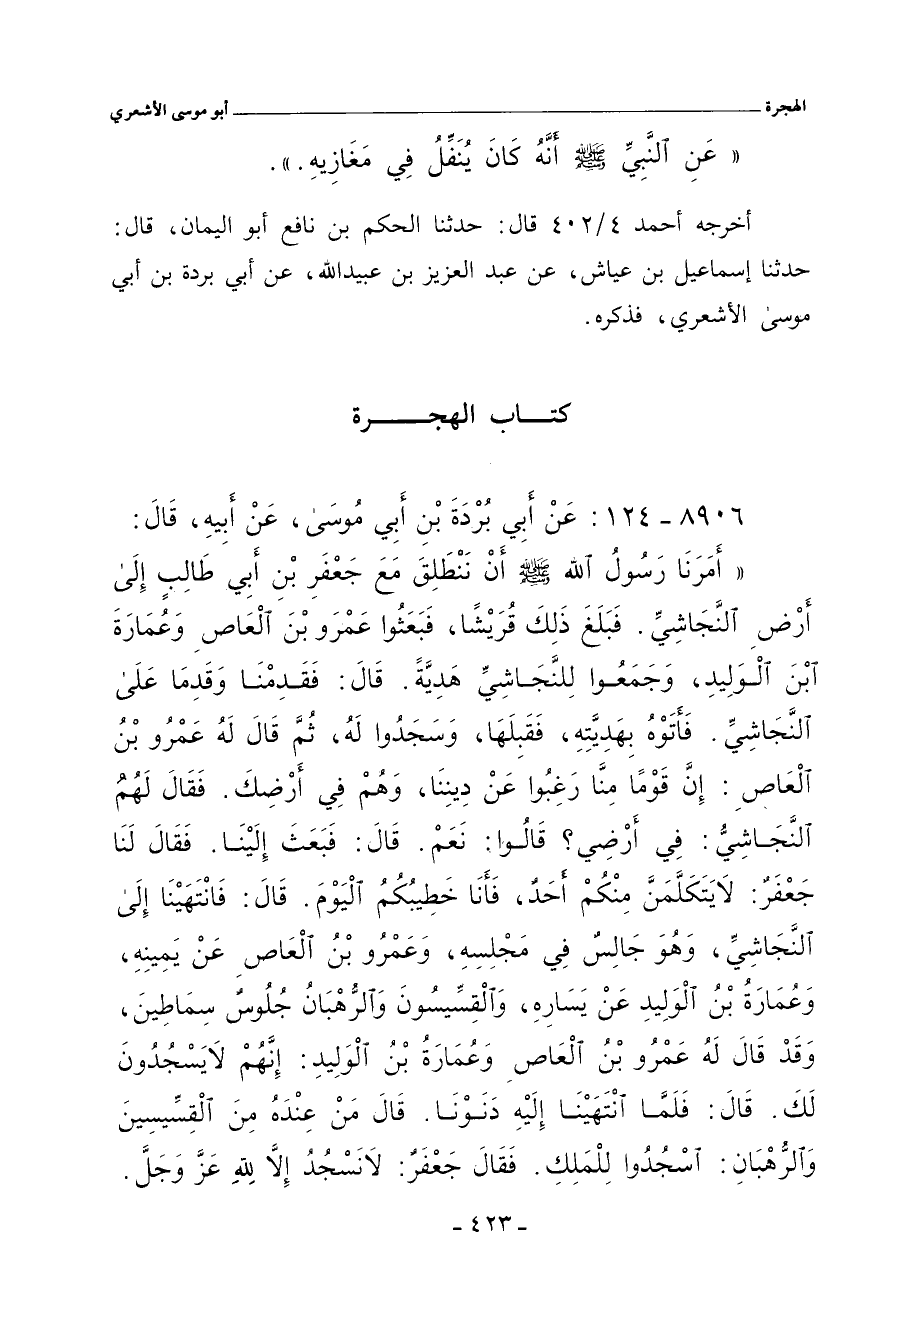 الهجرة ــــــــــــــــــــ أبو موسى الأشعري
« عَنِ ٱلنَّبِيِّ ﷺ أَنَّهُ كَانَ يُنَفِّلُ فِي مَغَازِيهِ . » .
أخرجه أحمد ٤٠٢/٤ قال: حدثنا الحكم بن نافع أبو اليمان، قال:
حدثنا إسماعيل بن عياش، عن عبد العزيز بن عبيدالله، عن أبي بردة بن أبي
موسىٰ الأشعري، فذكره.
كتـــاب الهجـــــرة
٨٩٠٦ ـ ١٢٤: عَنْ أَبِي بُرْدَةَ بْنِ أَبِي مُوسَىٰ، عَنْ أَبِيهِ، قَالَ:
« أَمَرَنَا رَسُولُ ٱللهِ ﷺ أَنْ نَنْطَلِقَ مَعَ جَعْفَرِ بْنِ أَبِي طَالِبٍ إِلَىٰ
أَرْضِ ٱلنَّجَاشِيِّ. فَبَلَغَ ذَلِكَ قُرَيْشًا، فَبَعَثُوا عَمْرَو بْنَ ٱلْعَاصِ وَعُمَارَةَ
ٱبْنَ ٱلْوَلِيدِ، وَجَمَعُوا لِلنَّجَاشِيِّ هَدِيَّةً. قَالَ: فَقَدِمْنَا وَقَدِمَا عَلَىٰ
ٱلنَّجَاشِيِّ. فَأَتَوْهُ بِهَدِيَّتِهِ، فَقَبِلَهَا، وَسَجَدُوا لَهُ، ثُمَّ قَالَ لَهُ عَمْرُو بْنُ
ٱلْعَاصِ: إِنَّ قَوْمًا مِنَّا رَغِبُوا عَنْ دِينِنَا، وَهُمْ فِي أَرْضِكَ. فَقَالَ لَهُمُ
ٱلنَّجَاشِيُّ: فِي أَرْضِي؟ قَالُوا: نَعَمْ. قَالَ: فَبَعَثَ إِلَيْنَا. فَقَالَ لَنَا
جَعْفَرٌ: لاَيَتَكَلَّمَنَّ مِنْكُمْ أَحَدٌ، فَأَنَا خَطِيبُكُمُ ٱلْيَوْمَ. قَالَ: فَانْتَهَيْنَا إِلَىٰ
ٱلنَّجَاشِيِّ، وَهُوَ جَالِسٌ فِي مَجْلِسِهِ، وَعَمْرُو بْنُ ٱلْعَاصِ عَنْ يَمِينِهِ،
وَعُمَارَةُ بْنُ ٱلْوَلِيدِ عَنْ يَسَارِهِ، وَٱلْقِسِّيسُونَ وَٱلرُّهْبَانُ جُلُوسٌ سِمَاطِينَ،
وَقَدْ قَالَ لَهُ عَمْرُو بْنُ ٱلْعَاصِ وَعُمَارَةُ بْنُ ٱلْوَلِيدِ: إِنَّهُمْ لاَيَسْجُدُونَ
لَكَ. قَالَ: فَلَمَّا ٱنْتَهَيْنَا إِلَيْهِ دَنَوْنَا. قَالَ مَنْ عِنْدَهُ مِنَ ٱلْقِسِّيسِينَ
وَٱلرُّهْبَانِ: ٱسْجُدُوا لِلْمَلِكِ. فَقَالَ جَعْفَرٌ: لاَنَسْجُدُ إِلاَّ لِلّٰهِ عَزَّ وَجَلَّ.
ـ ٤٢٣ ـ